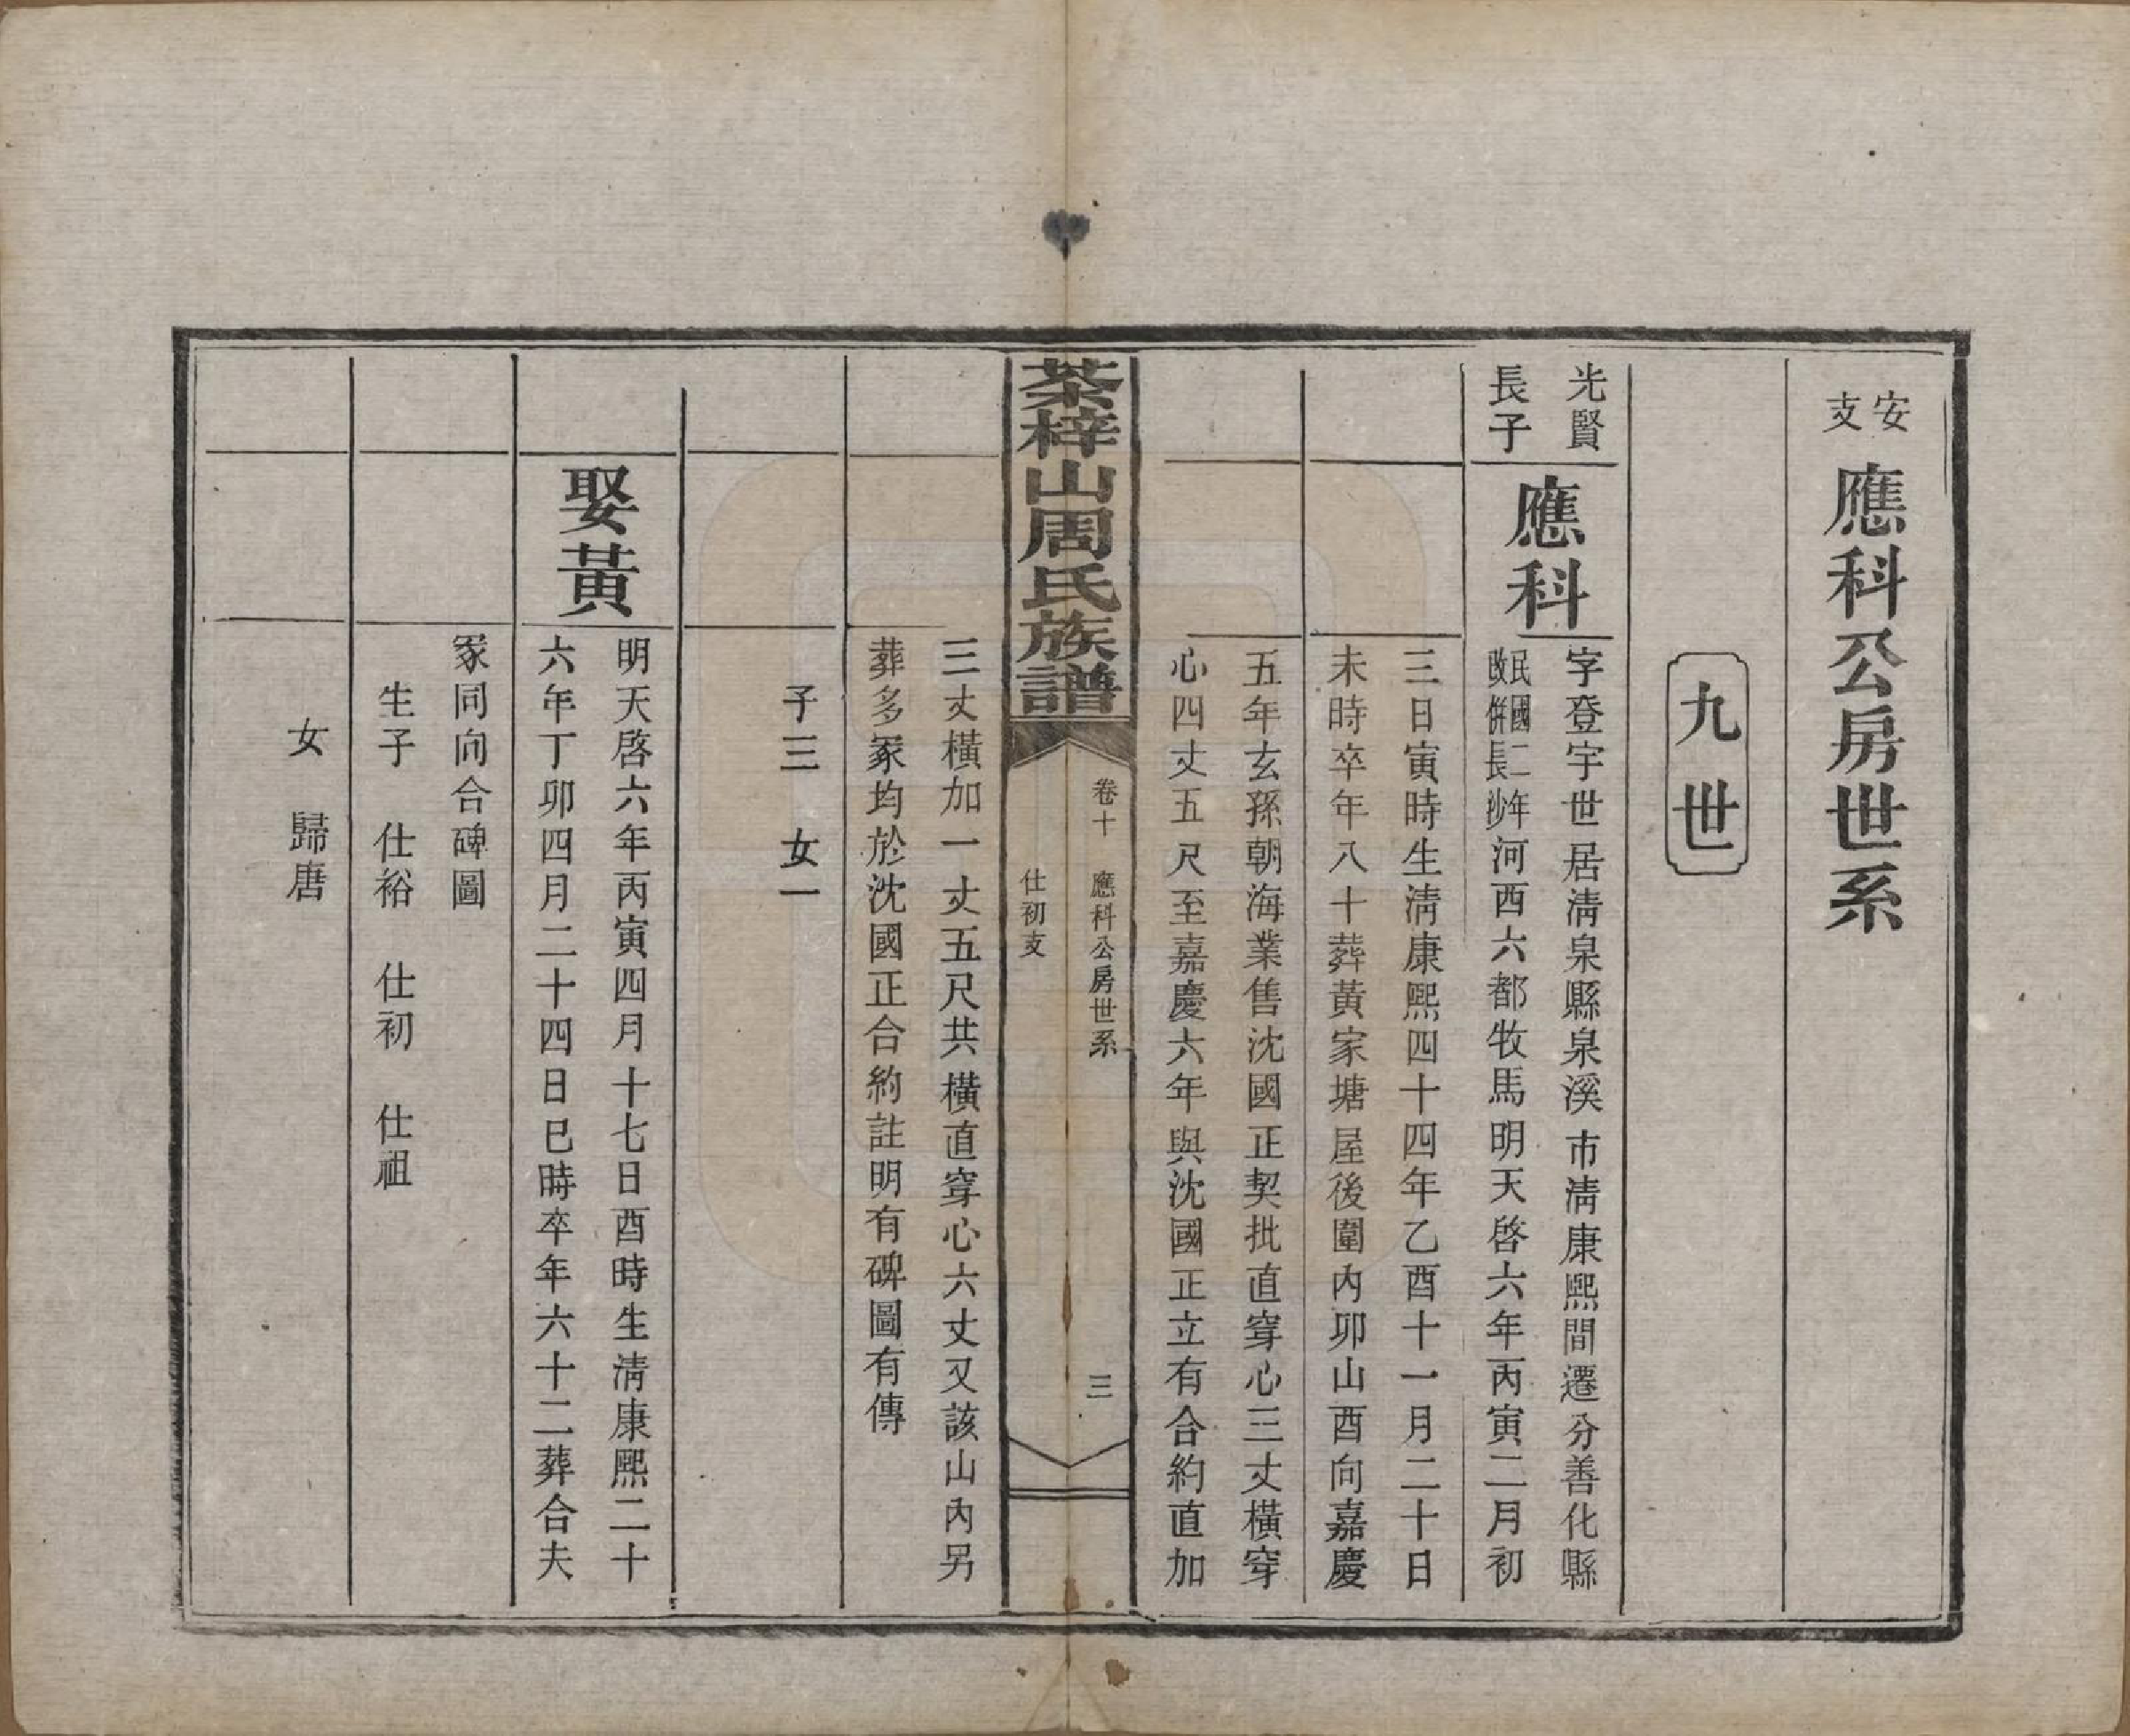 安支
應科公房世系
九世
光賢
長子
應科
字登宇世居淸泉縣泉溪市淸康熙間遷分善化縣
民國二年
改併長沙
河西六都牧馬明天啓六年丙寅二月初
三日寅時生淸康熙四十四年乙酉十一月二十日
未時卒年八十葬黃家塘屋後圍內卯山酉向嘉慶
五年玄孫朝海業售沈國正契批直穿心三丈橫穿
心四丈五尺至嘉慶六年與沈國正立有合約直加
茶梓山周氏族譜
卷十 應科公房世系 三
仕初支
三丈橫加一丈五尺共橫直穿心六丈又該山內另
葬多冢均於沈國正合約註明有碑圖有傳
子三 女一
娶黃
明天啓六年丙寅四月十七日酉時生淸康熙二十
六年丁卯四月二十四日巳時卒年六十二葬合夫
冢同向合碑圖
生子 仕裕 仕初 仕祖
女 歸唐